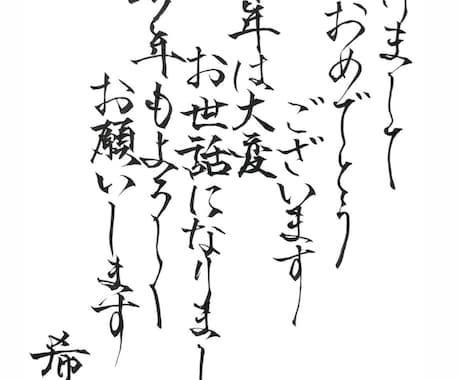 けまして
おめでとう
ございます
年は大変
お世話になりまし
年もよろしく
お願いします
希